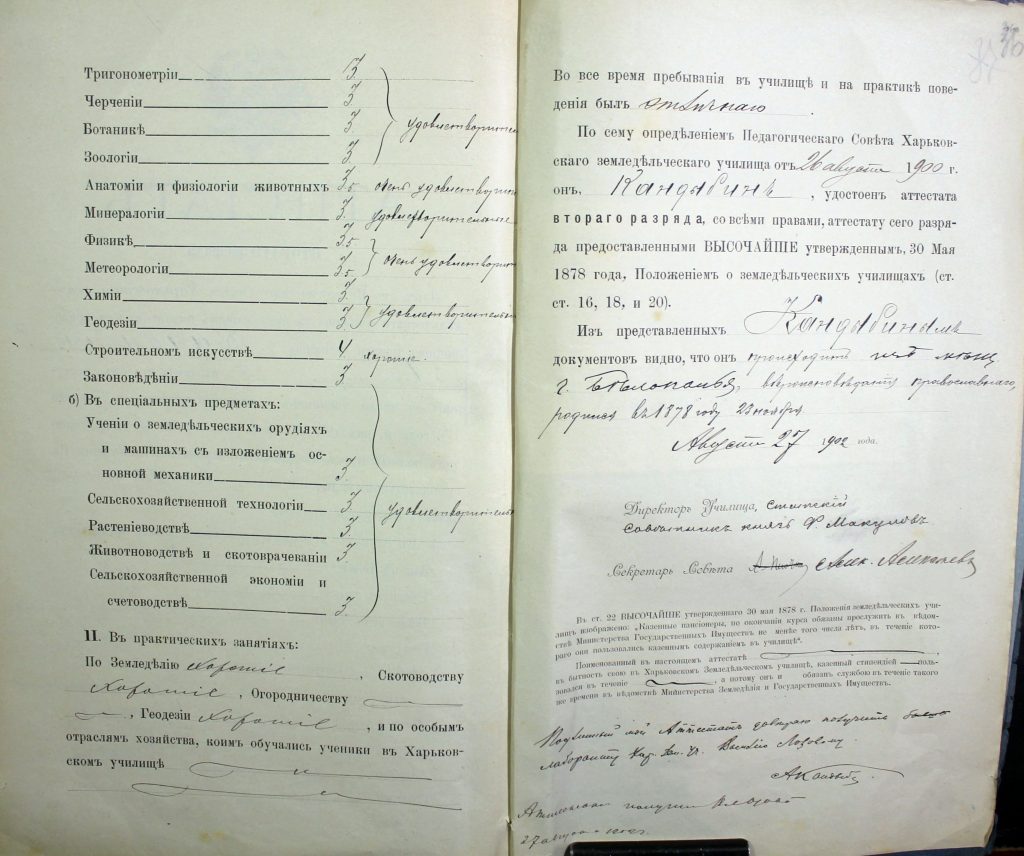 Тригонометріи 3.
Черченіи 3
Ботаникѣ 3 удовлетворительн
Зоологіи 3.
Анатоміи и физіологіи животныхъ 3.5 очень удовлетворит
Минералогіи 3. удовлетворительные
Физикѣ 3.5
Метеорологіи 3.5 очень удовлетворит
Химіи 3.
Геодезіи 3 удовлетворительн
Строительномъ искусствѣ 4 хорошіе.
Законовѣдѣніи 3
б) Въ спеціальныхъ предметахъ:
Ученіи о земледѣльческихъ орудіяхъ
и машинахъ съ изложеніемъ ос-
новной механики 3.
Сельскохозяйственной технологіи 3. удовлетворительн
Растеніеводствѣ 3.
Животноводствѣ и скотоврачеваніи 3
Сельскохозяйственной экономіи и
счетоводствѣ 3.
II. Въ практическихъ занятіяхъ:
По Земледѣлію хорошіе, Скотоводству
хорошіе, Огородничеству
, Геодезіи хорошіе, и по особымъ
отраслямъ хозяйства, коимъ обучались ученики въ Харьков-
скомъ училищѣ
Во все время пребыванія въ училищѣ и на практикѣ пове-
денія былъ отличнаго.
По сему опредѣленіемъ Педагогическаго Совѣта Харьков-
скаго земледѣльческаго училища отъ 26 августа 1900 г.
онъ, Кандыбинъ, удостоенъ аттестата
втораго разряда, со всѣми правами, аттестату сего разря-
да предоставленными ВЫСОЧАЙШЕ утвержденнымъ, 30 Мая
1878 года, Положеніемъ о земледѣльческихъ училищахъ (ст.
ст. 16, 18, и 20).
Изъ представленныхъ Кандыбинымъ
документовъ видно, что онъ происходитъ изъ мѣщ
г. Бѣлополья, вѣроисповѣданія православнаго,
родился въ 1878 году 23 ноября
Августа 27 1902 года.
Директоръ Училища, Статскій
Совѣтникъ князь Ф. Макуловъ
Секретарь Совѣта
Въ ст. 22 ВЫСОЧАЙШЕ утвержденнаго 30 мая 1878 г. Положенія земледѣльческихъ учи-
лищъ изображено: „Казенные пансіонеры, по окончаніи курса обязаны прослужить въ вѣдом-
ствѣ Министерства Государственныхъ Имуществъ не менѣе того числа лѣтъ, въ теченіе кото-
раго они пользовались казеннымъ содержаніемъ въ училищѣ“.
Поименованный въ настоящемъ аттестатѣ
въ бытность свою въ Харьковскомъ Земледѣльческомъ училищѣ, казенный стипендіей поль-
зовался въ теченіе , а потому онъ и обязанъ службою въ теченіе такого
же времени въ вѣдомствѣ Министерства Земледѣлія и Государственныхъ Имуществъ.
Подлинный мой Аттестатъ довѣряю получить
лаборанту Василію Лозовому.
Аттестатъ получилъ В. Лозовой
27 августа 1902 г.